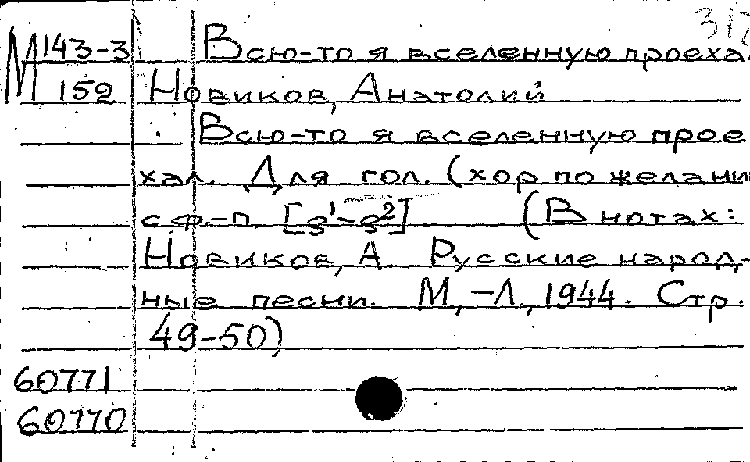 М 143-3 Всю-то я вселенную проеха
152 Новиков, Анатолий
Всю-то я вселенную прое
хал. Для гол. (хор по желани
с ф.-п. [g¹-g²] (В нотах:
Новиков, А. Русские народ-
ные песни. М.,-Л., 1944. Стр.
49-50)
60771
60770